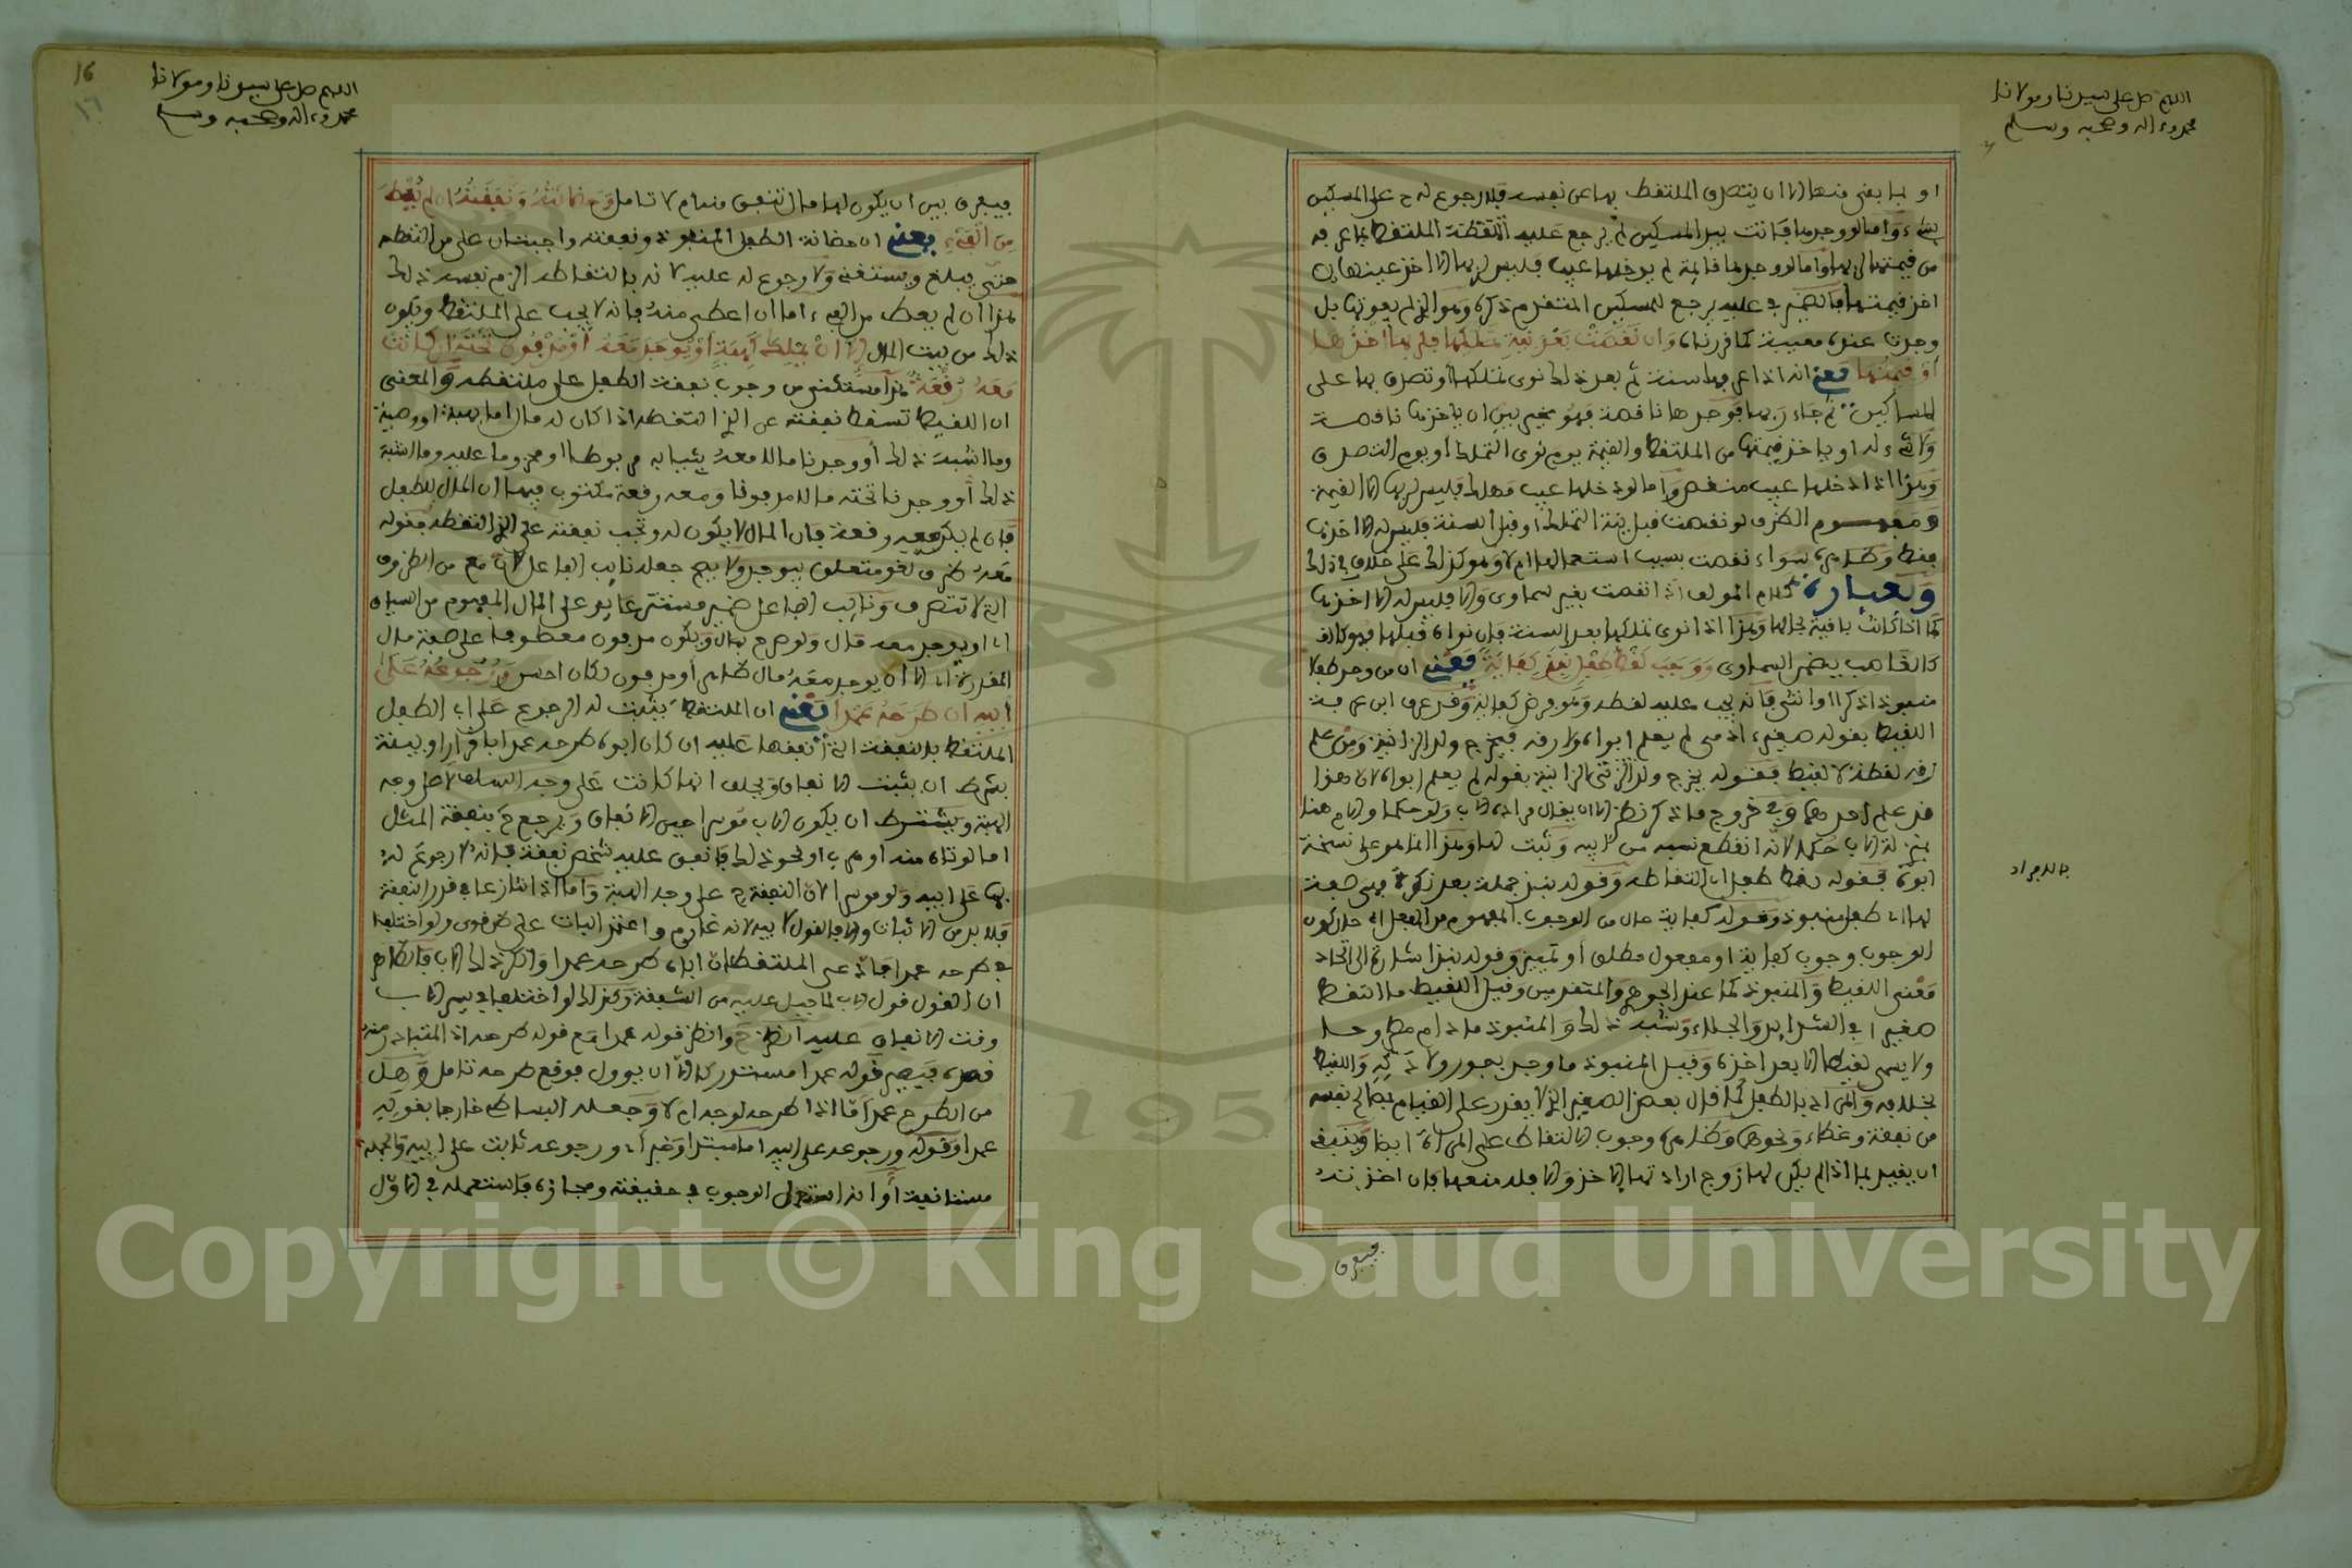 اللهم صل على سيدنا ومولانا
محمد وءاله وصحبه وسلم
او بما بقي منها الا ان يتصرف الملتقط بها عن نفسه فلا رجوع له ح على المسكين
بشيء واما لو وجدها فاتت بيد المسكين لم يرجع عليه الملتقط بما غرمه
من قيمتها لربها واما لو وجدها قائمة لم يدخلها عيب فليس لربها الا اخذ عينها
اخذ قيمتها فالضمير في عليه يرجع للمسكين المتقدم ذكره وهو اذا لم يفوتها بل
وجدت عنده معيبة كما قررناه وان نقصت بعد نية تملكها فلربها اخذها
أو قيمتها يعني انه اذا عرفها سنة ثم بعد ذلك نوى تملكها أو تصدق بها على
المساكين ثم جاء ربها فوجدها ناقصة فهو مخير بين ان ياخذها ناقصة
ولا شيء له او ياخذ قيمتها من الملتقط والقيمة يوم نوى التملك أو يوم التصدق
وهذا اذا دخلها عيب منقص واما لو دخلها عيب فهلك فليس لربها الا القيمة
ومفهوم الظرف لو نقصت قبل نية التملك او قبل السنة فليس له الا اخذها
فقط وظاهره سواء نقصت بسبب استعمالها ام لا وهو كذلك على خلاف في ذلك
كلام المولف اذا نقصت بغير سماوى والا فليس له الا اخذها
كما اذا كانت باقية بحالها وهذا اذا نوى تملكها بعد السنة فان نواه قبلها فهو كالغـ
كالغاصب يضمن السماوى ووجب لقط طفل نبذ كفاية يعني ان من وجد طفلا
منبوذا ذكرا او انثى فانه يجب عليه لقطه وهو فرض كفاية وقد عرف ابن عرفة
اللقيط بقوله صغير ادمى لم يعلم ابواه ولا رقه فيخرج ولد الزانية ومن علم
رقه لقطة لا لقيط فقوله يخرج ولد الزنى الزانية بقوله لم يعلم ابواه لان هذا
قد علم احدهما وفي خروج ما ذكر نظر الا ان يقال مراده الاب ولو حكما والام هنا
بمنزلة الاب حكما لانه انقطع نسبه من ابيه وثبت لها وهذا انما هو على نسخة
ابوه فقوله لقط طفل اى التقاطه وقوله نبذ جملة بعد نكرة فهي صفة
لها اى طفل منبوذ وقوله كفاية حال من الوجوب المفهوم من الفعل اى حال كون
الوجوب وجوب كفاية او مفعول مطلق أو تمييز وقوله نبذ اشارة الى اتحاد
معنى اللقيط والمنبوذ كما عند الجوهري والمتقدمين وقيل اللقيط ما التقط
صغيرا في الشدايد والجلاء وشبه ذلك والمنبوذ مادام مطروحا
ولا يسمى لقيطا الا بعد اخذه وقيل المنبوذ ما وجد بفور ولادته واللقيط
بخلافه والمراد بالطفل كما قال بعض الصغير الذى لا يقدر على القيام بمصالح نفسه
من نفقة وغطاء ونحوهما وظاهره وجوب الالتقاط على المراة ايضا وينبغي
ان يقيد بما اذا لم يكن لها زوج اراد تمالى الاخذ والا فله منعها فان اخذته
فيفرق
اللهم صل على سيدنا ومولانا
محمد وءاله وصحبه وسلم
16
١٦
فيفرق بين ان يكون لها مال تنفق منه ام لا تامل وحضانته ونفقته ان لم يعط
من الفيء يعني ان حضانة الطفل المنبوذ ونفقته واجبتان على من التقطه
حتى يبلغ ويستغني ولا رجوع له عليه لانه بالتقاطه الزم نفسه ذلك
هذا ان لم يعط من الفيء اما ان اعطى منه فانه لا يجب على الملتقط ويكون
ذلك من بيت المال الا ان يملك كهبة أو يوجد معه أو مدفون تحته ان كانت
معه رقعة هذا مستثنى من وجوب نفقة الطفل على ملتقطه والمعنى
ان اللقيط تسقط نفقته عن الذى التقطه اذا كان له مال اما بهبة او وصية
وما اشبه ذلك أو وجدنا مالا معه بثيابه مربوطا او محزوما عليه وما اشبه
ذلك أو وجدنا تحته مالا مدفونا ومعه رقعة مكتوب فيها ان المال للطفل
فان لم يكن معه رقعة فان المال لا يكون له وتجب نفقته على الذى التقطه فقوله
معه ظرف لغو متعلق بيوجد ولا يصح جعله نايب الفاعل لان مع من الظروف
التى لا تتصرف ونايب الفاعل ضمير مستتر عايد على المال المفهوم من السياق
اى او يوجد معه مال ولو صرح بمال ويكون مدفون معطوفا على صفة مال
المقدرة اى الا ان يوجد معه مال ظاهر أو مدفون لكان احسن ورجوعه على
ابيه ان طرحه عمدا يعني ان الملتقط يثبت له الرجوع على اب الطفل
الملتقط بالنفقة التى انفقها عليه ان كان ابوه طرحه عمدا باقرار او ببينة
بشرط ان يثبت الانفاق ويحلف انها كانت على وجه السلف لا على وجه
الهبة ويشترط ان يكون الاب موسرا حين الانفاق ويرجع ح بنفقة المثل
اما لو تاه منه او هرب او نحو ذلك فانفق عليه شخص نفقة فانه لا رجوع له
بها على ابيه ولو موسرا لان النفقة ح على وجه الهبة واما اذا تنازعا في قدر النفقة
فلا بد من الاثبات والا فالقول لابيه لانه غارم واعتمد البات على ظن قوى ولو اختلفا
في طرحه عمدا فادعى الملتقط ان اباه طرحه عمدا وانكر ذلك الاب فالظاهر
ان القول قول الاب لما جبل عليه من الشفقة وكذلك لو اختلفا في يسر الاب
وقت الانفاق عليه انظر ح وانظر قوله عمدا مع قوله طرحه اذ المتبادر منه
قصده فيصير قوله عمدا مستدركا الا ان يوول بوقع طرحه تامل وهل
من الطرح عمدا ما اذا طرحه لوجه ام لا وجعله البساطي خارجا بقوله
عمدا وقوله ورجوعه على ابيه اما مبتدا وخبر اى ورجوعه ثابت على ابيه والجملة
مستانفة أو انه استعمل الوجوب في حقيقته ومجازه فاستعمله في الاول